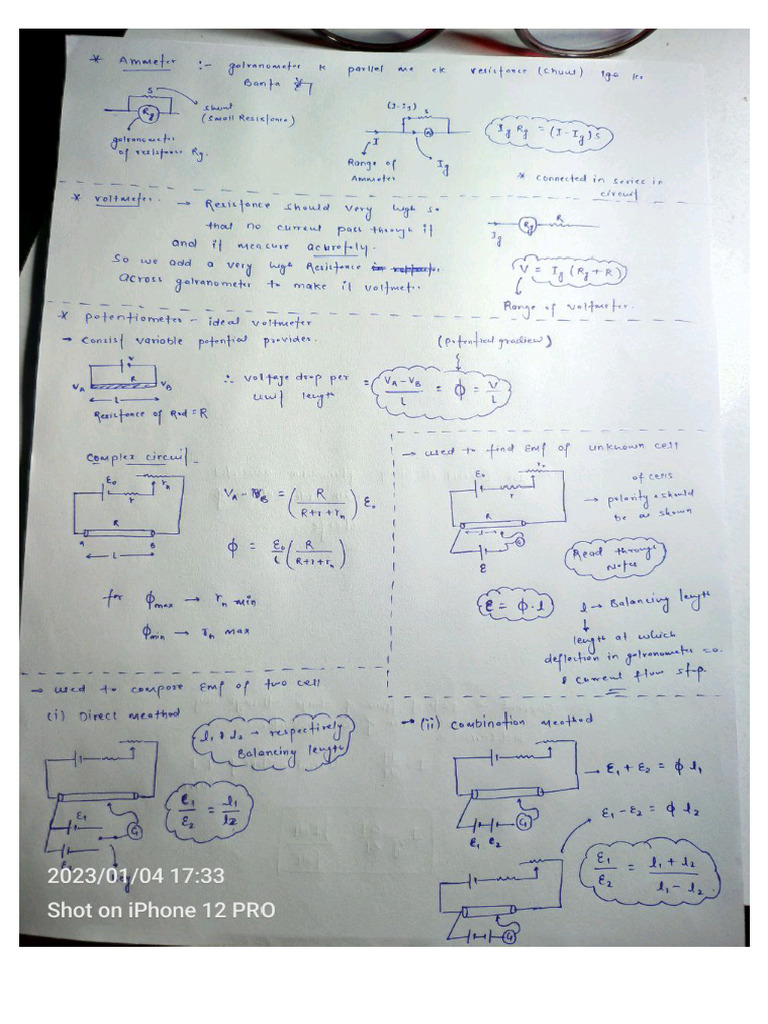 * Ammeter :- galvanometer k parllel me ek resistance (shunt) lga kr
Banta h
S
shunt
(Small Resistance)
Rg
galvanometer
of resistance Rg.
(I-Ig)
S
I
Ig
Range of
Ammeter
Ig Rg = (I-Ig)S
* connected in series in
circuit
* voltmeter. → Resistance should very high so
that no current pass through it
and it measure
So we add a very high Resistance
across galvanometer to make it voltmeter.
Rg R
Ig
V = Ig (Rg+R)
Range of voltmeter.
* potentiometer - ideal voltmeter
→ consist variable potential provider.
V
VA R VB
L
Resistance of Rod = R
∴ voltage drop per
unit length
(potential gradient)
= VA-VB/L = Φ = V/L
Complex circuit
E0
r
rn
R
A B
L
VA - VB = (R/R+r+rn) E0
Φ = E0/L (R/R+r+rn)
for Φmax → rn min
Φmin → rn max
→ used to find Emf of unknown cell
E0
rn
r
R
l
G
E
of cells
→ polarity should
be as shown
Read through
Notes
E = Φ.l
l → Balancing length
length at which
deflection in galvanometer = 0.
& current flow stop.
→ used to compare Emf of two cell
(i) Direct meathod
l1 & l2 → respectively
Balancing length
E1
G
E2
E1/E2 = l1/l2
→ (ii) combination meathod
G
E1 E2
→ E1 + E2 = Φ l1
E1 - E2 = Φ l2
G
E1/E2 = l1+l2/l1-l2
2023/01/04 17:33
Shot on iPhone 12 PRO